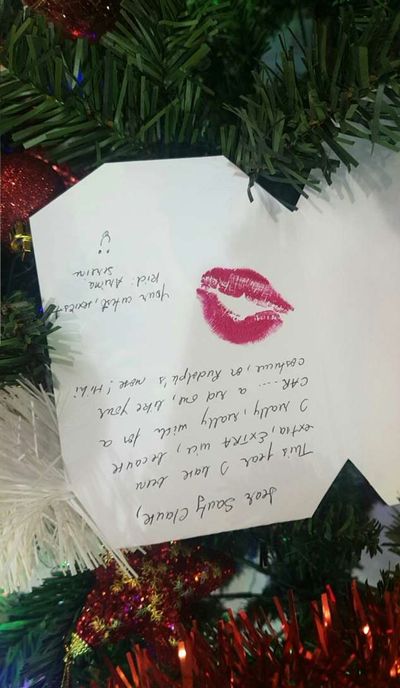 Dear Santy Clause,
This year I have been
extra, EXTRA nice, because
I really, really wish for a
CAR.... a red one, like your
costume, or Rudolph's nose! Hihi
Your cutest, sexiest
kid:
:)